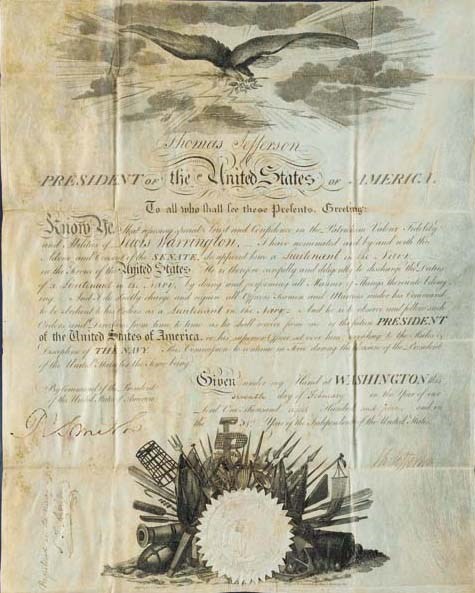 Thomas Jefferson
PRESIDENT OF the United States OF AMERICA.
To all who shall see these Presents, Greeting:
Know Ye, That reposing special Trust and Confidence in the Patriotism, Valour, Fidelity
and Abilities of Lewis Warrington, I have nominated and by and with the
Advice and Consent of the SENATE, do appoint him a Lieutenant in the Navy
in the Service of the United States. He is therefore carefully and diligently to discharge the Duties
of a Lieutenant in the Navy, by doing and performing all Manner of Things thereunto belong-
ing. And I do strictly charge and require all Officers, Seamen and Marines under his Command,
to be obedient to his Orders as a Lieutenant in the Navy. And he is to observe and follow such
Orders and Directions from time to time as he shall receive from me or the future PRESIDENT
of the United States of America, or his superior Officer set over him, according to the Rules &
Discipline of THE NAVY. This Commission to continue in force during the Pleasure of the President
of the United States for the time being.
Given under my Hand at WASHINGTON this
By Command of the President
of the United States of America.
day of February in the Year of our
Lord One thousand eight Hundred and and in
the 31st Year of the Independence of the United States.
Rt Smith
Th Jefferson